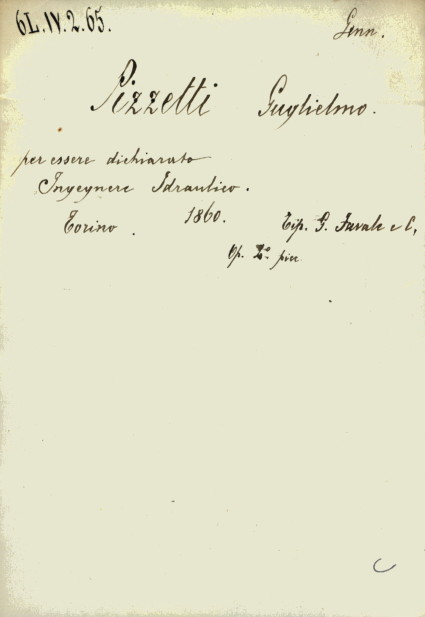 6L.IV.2.65.
Genn.
Pizzetti Guglielmo.
per essere dichiarato
Ingegnere Idraulico.
Torino. 1860. Tip. G. Favale e C.
Op. 4° picc
C